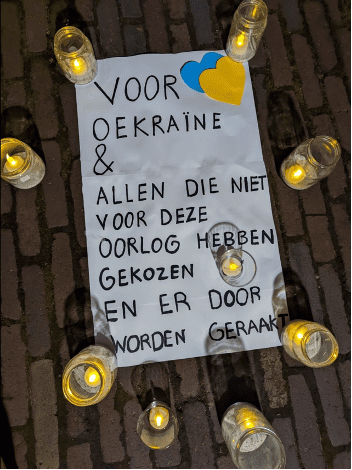 VOOR
OEKRAÏNE
&
ALLEN DIE NIET
VOOR DEZE
OORLOG HEBBEN
GEKOZEN
EN ER DOOR
WORDEN GERAAKT